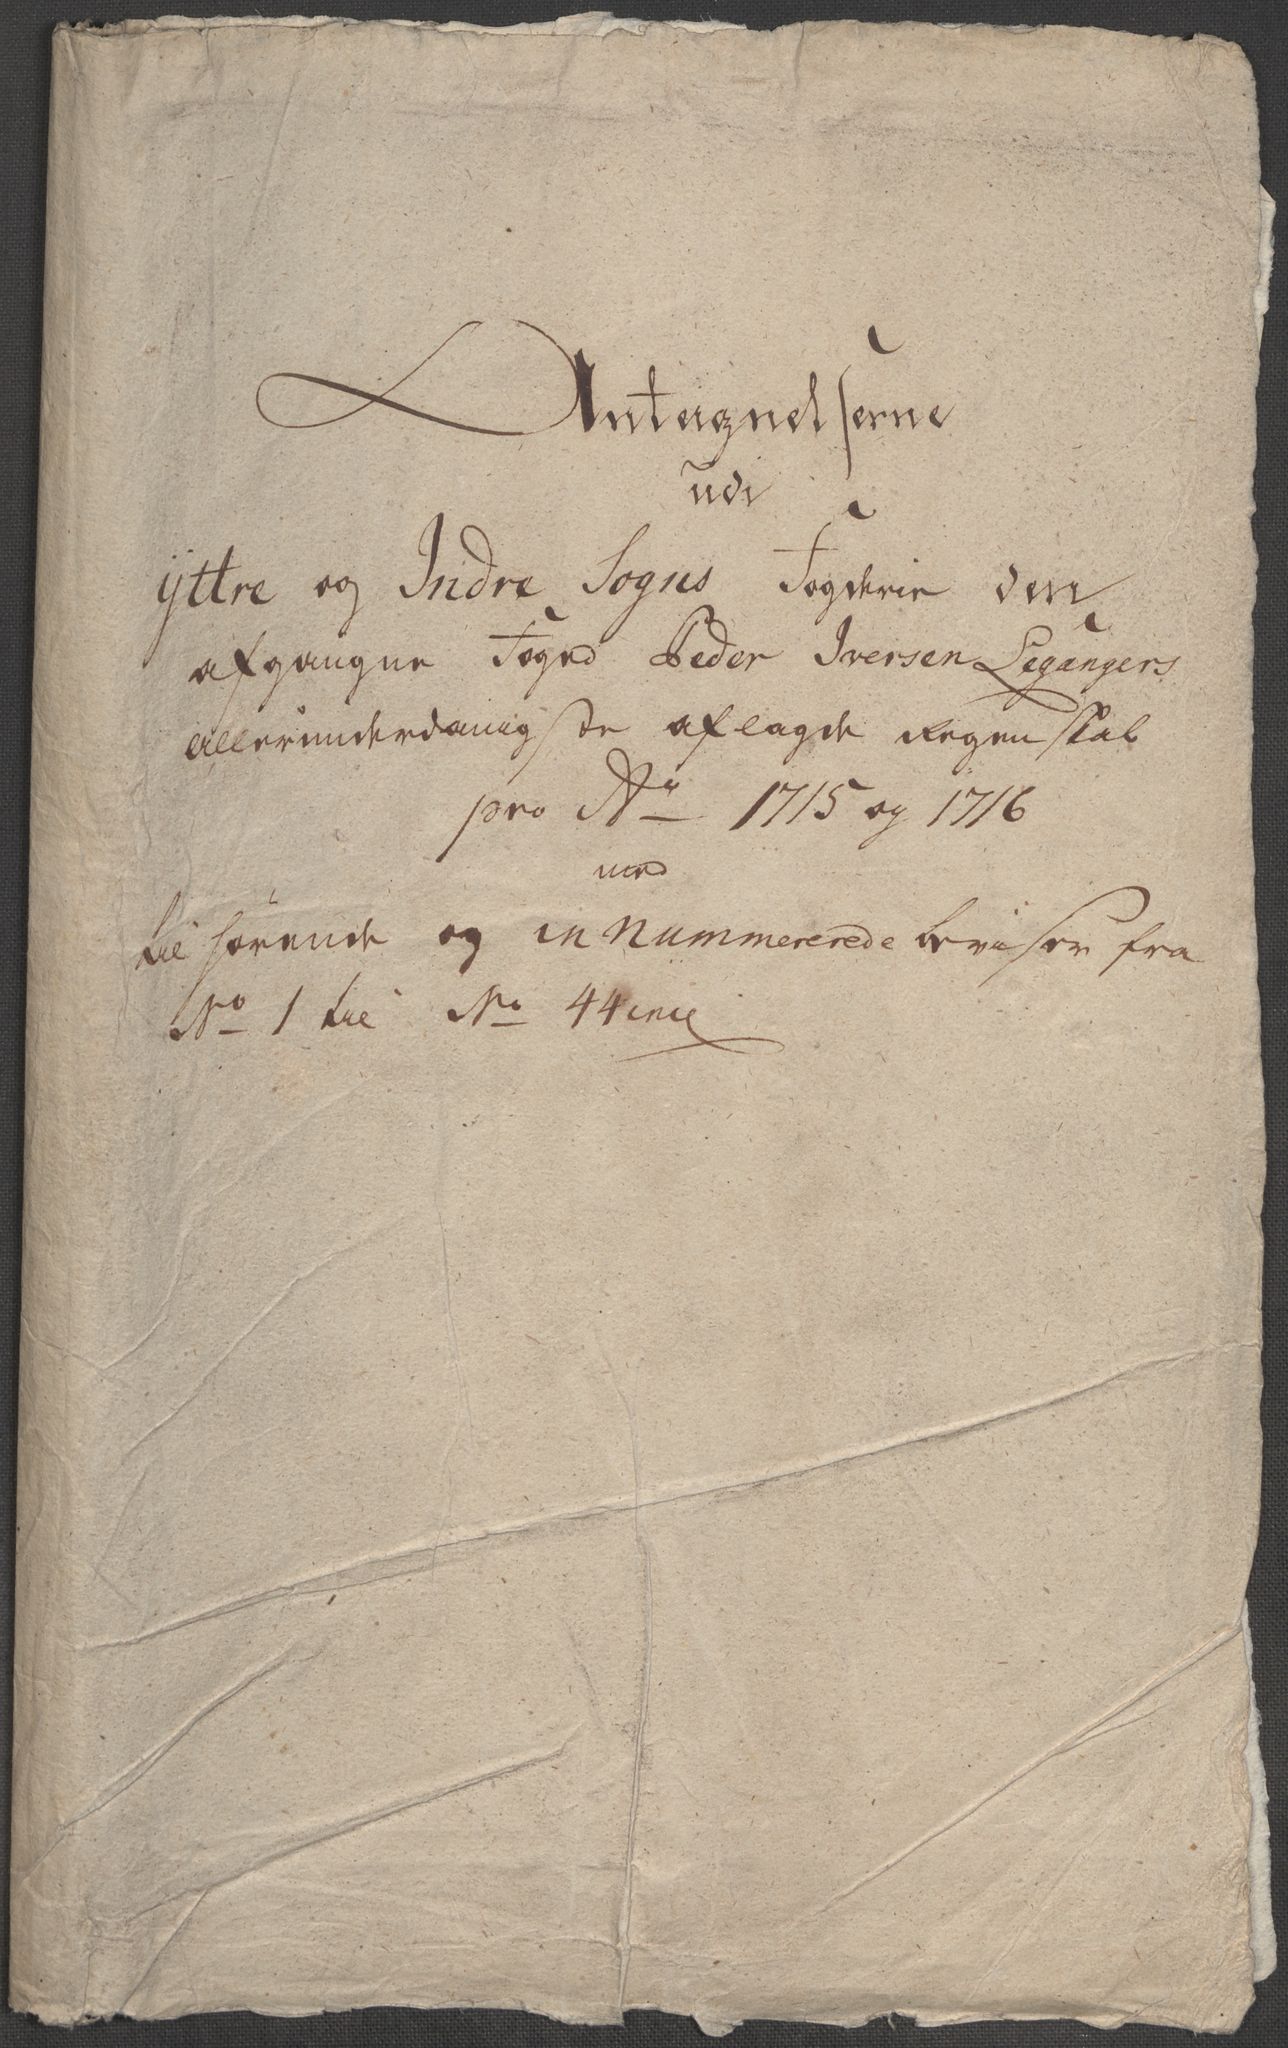 Antegnelserne
udi
Yttre og Indre Sogns Fogderie den
afgangne Foged Peder Iversen Legangers
allerunderdanigste aflagde Regenskab
pro A͞o 1715 og 1716
med
tilhørende og in Nummererede beviser fra
No 1 til No 44 incl